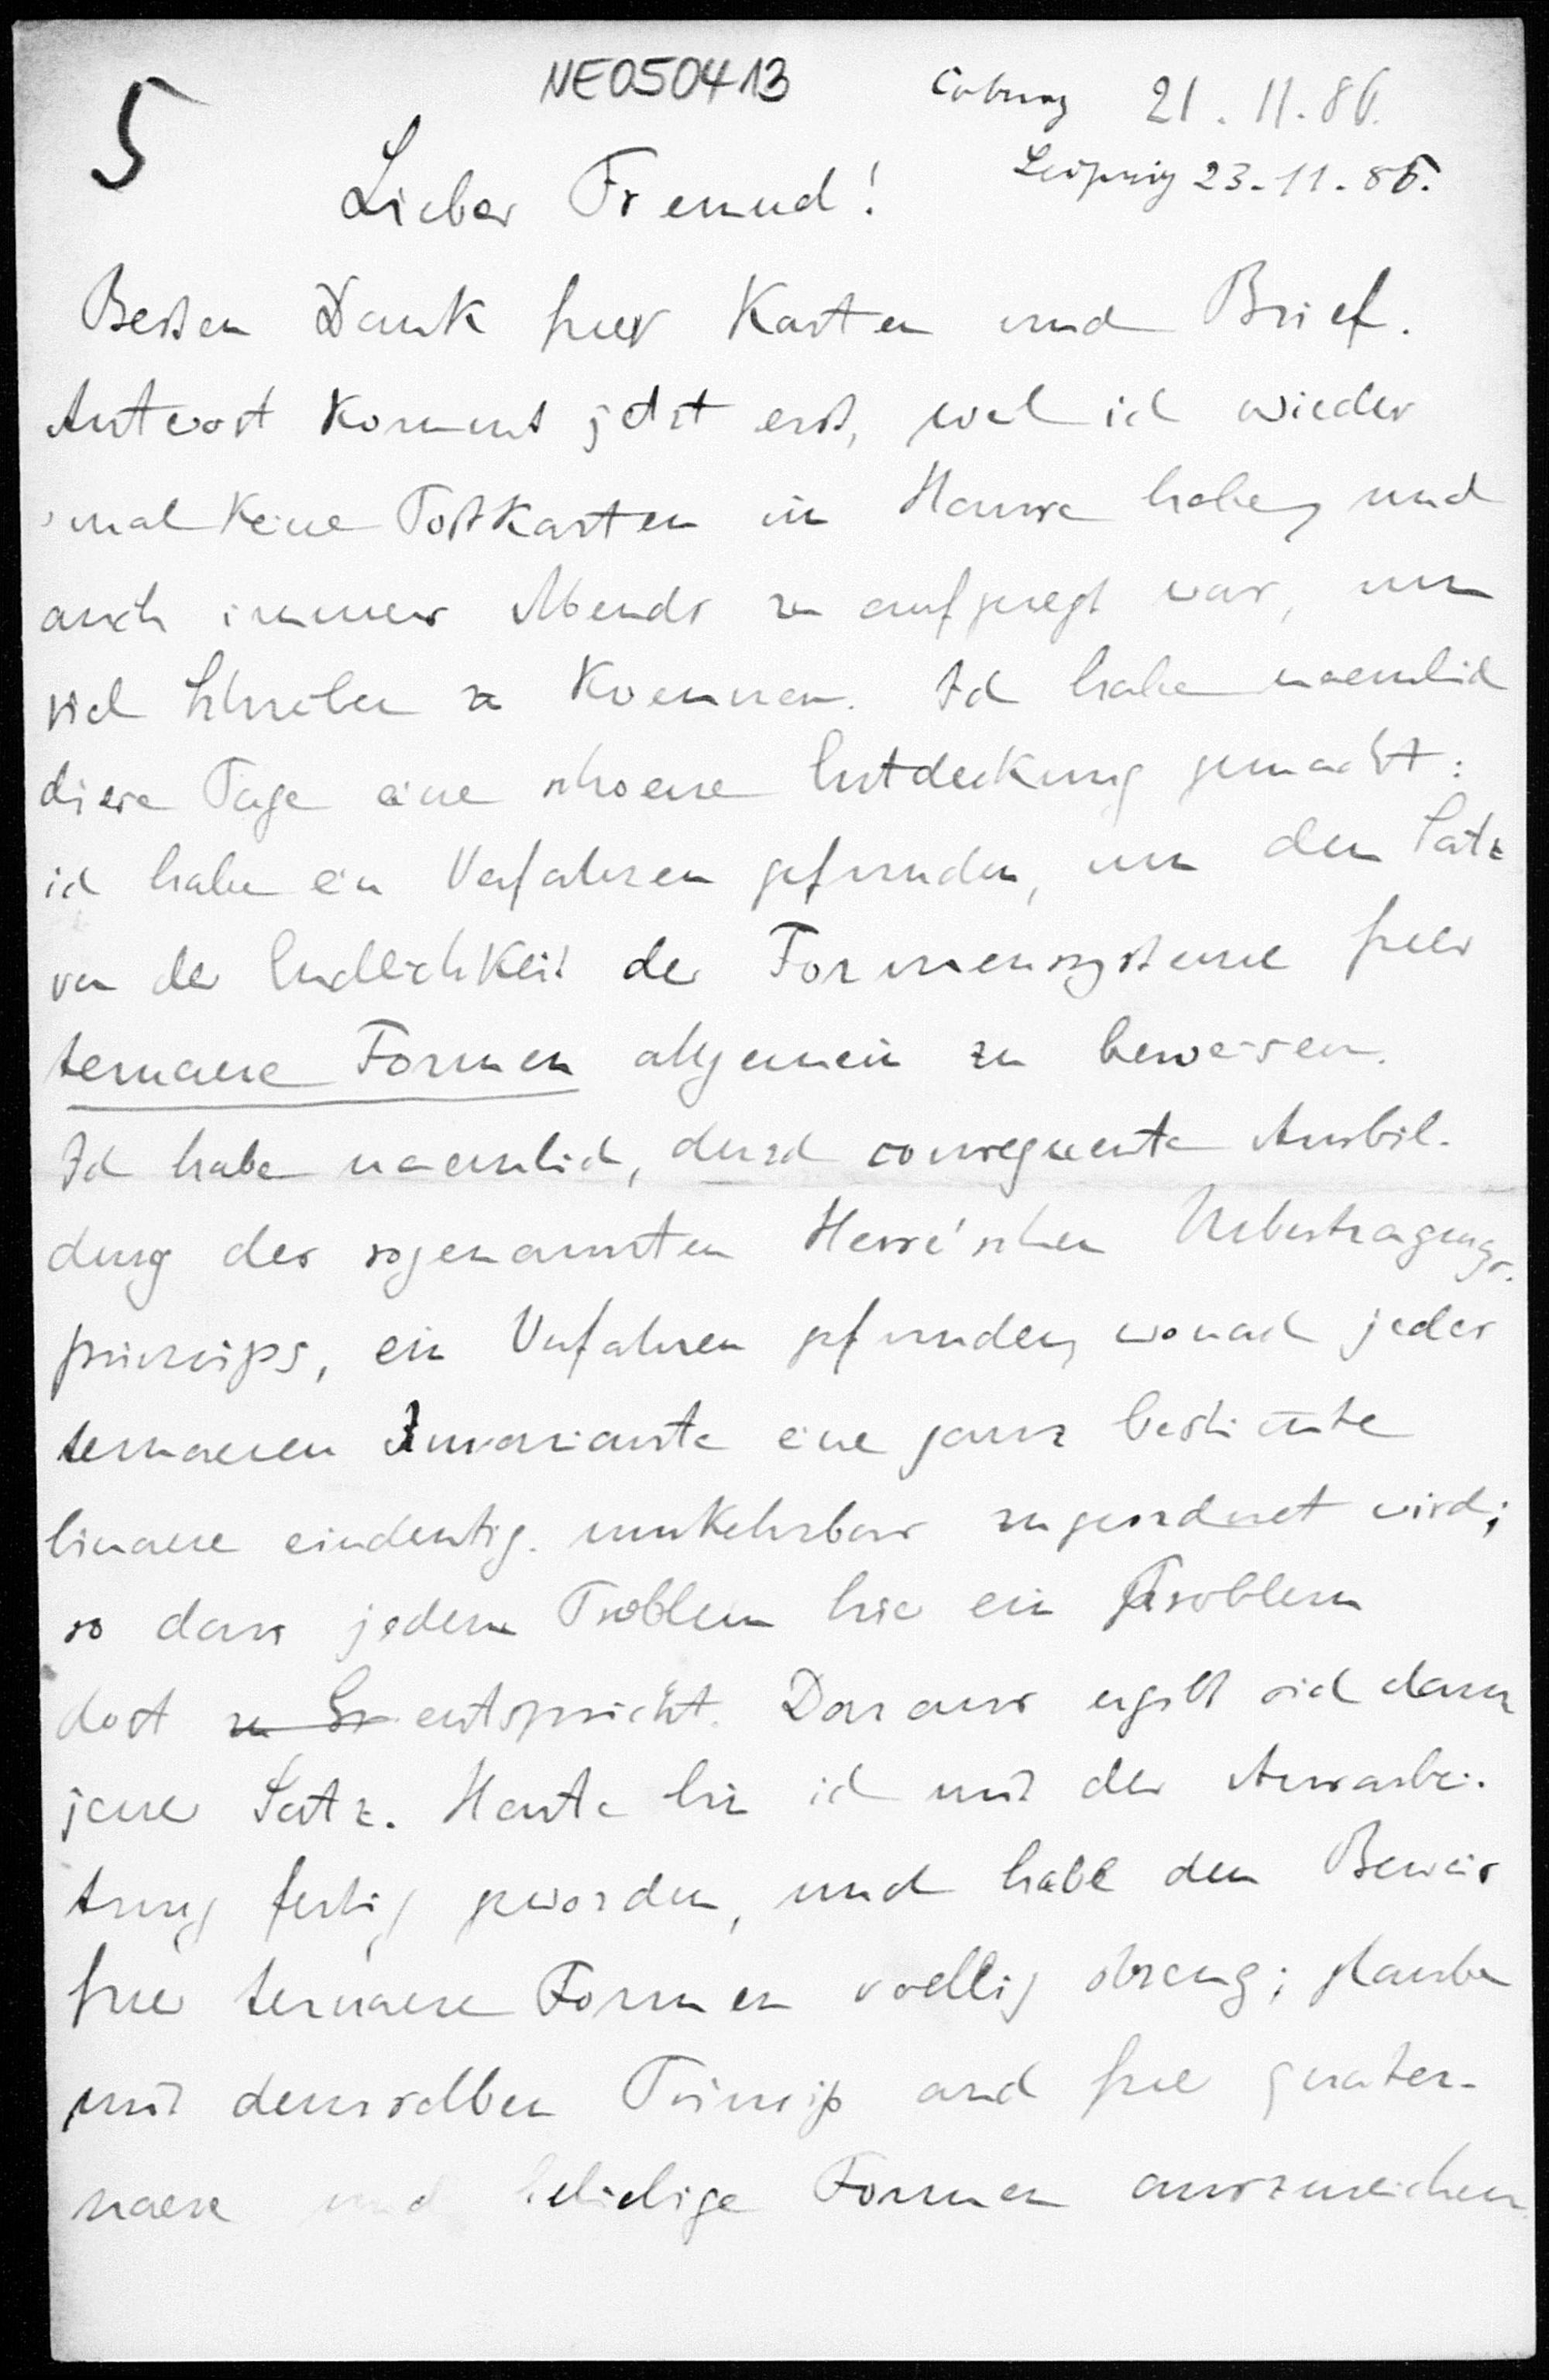 NE050413
5
Coburg 21.11.86.
Leipzig 23.11.86.
Lieber Freund!
Besten Dank fuer Karten und Brief.
Antwort kommt jetzt erst, weil ich wieder
'mal keine Postkarten im Hause habe, und
auch immer Abends zu aufgeregt war, um
viel schreiben zu koennen. Ich habe naemlich
diese Tage eine schoene Entdeckung gemacht:
ich habe ein Verfahren gefunden, um den Satz
von der Endlichkeit der Formensysteme fuer
ternaere Formen allgemein zu beweisen.
Ich habe naemlich, durch consequente Ausbil-
dung des sogenannten Hesse'schen Uebertragungs-
princips, ein Verfahren gefunden, wonach jeder
ternaeren Invariante eine ganz bestim̄te
binaere eindeutig umkehrbar zugeordnet wird;
so dass jedem Problem hie ein Problem
dort zu Er entspricht. Daraus ergibt sich dann
jener Satz. Heute bin ich mit der Ausarbei-
tung fertig geworden, und habe den Beweis
fuer ternaere Formen voellig streng; glaube
mit demselben Princip auch fuer quater-
naere und beliebige Formen auszureichen.